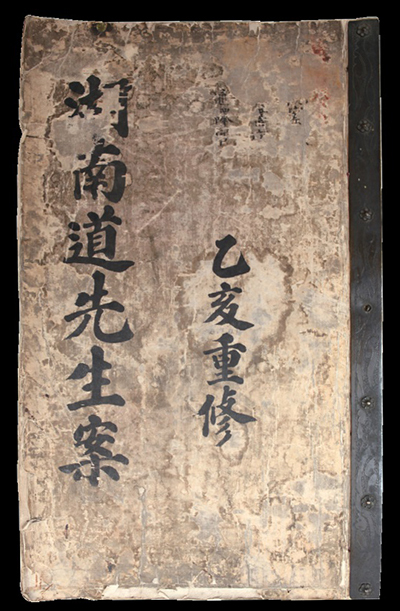 乙亥重修
湖南道先生案